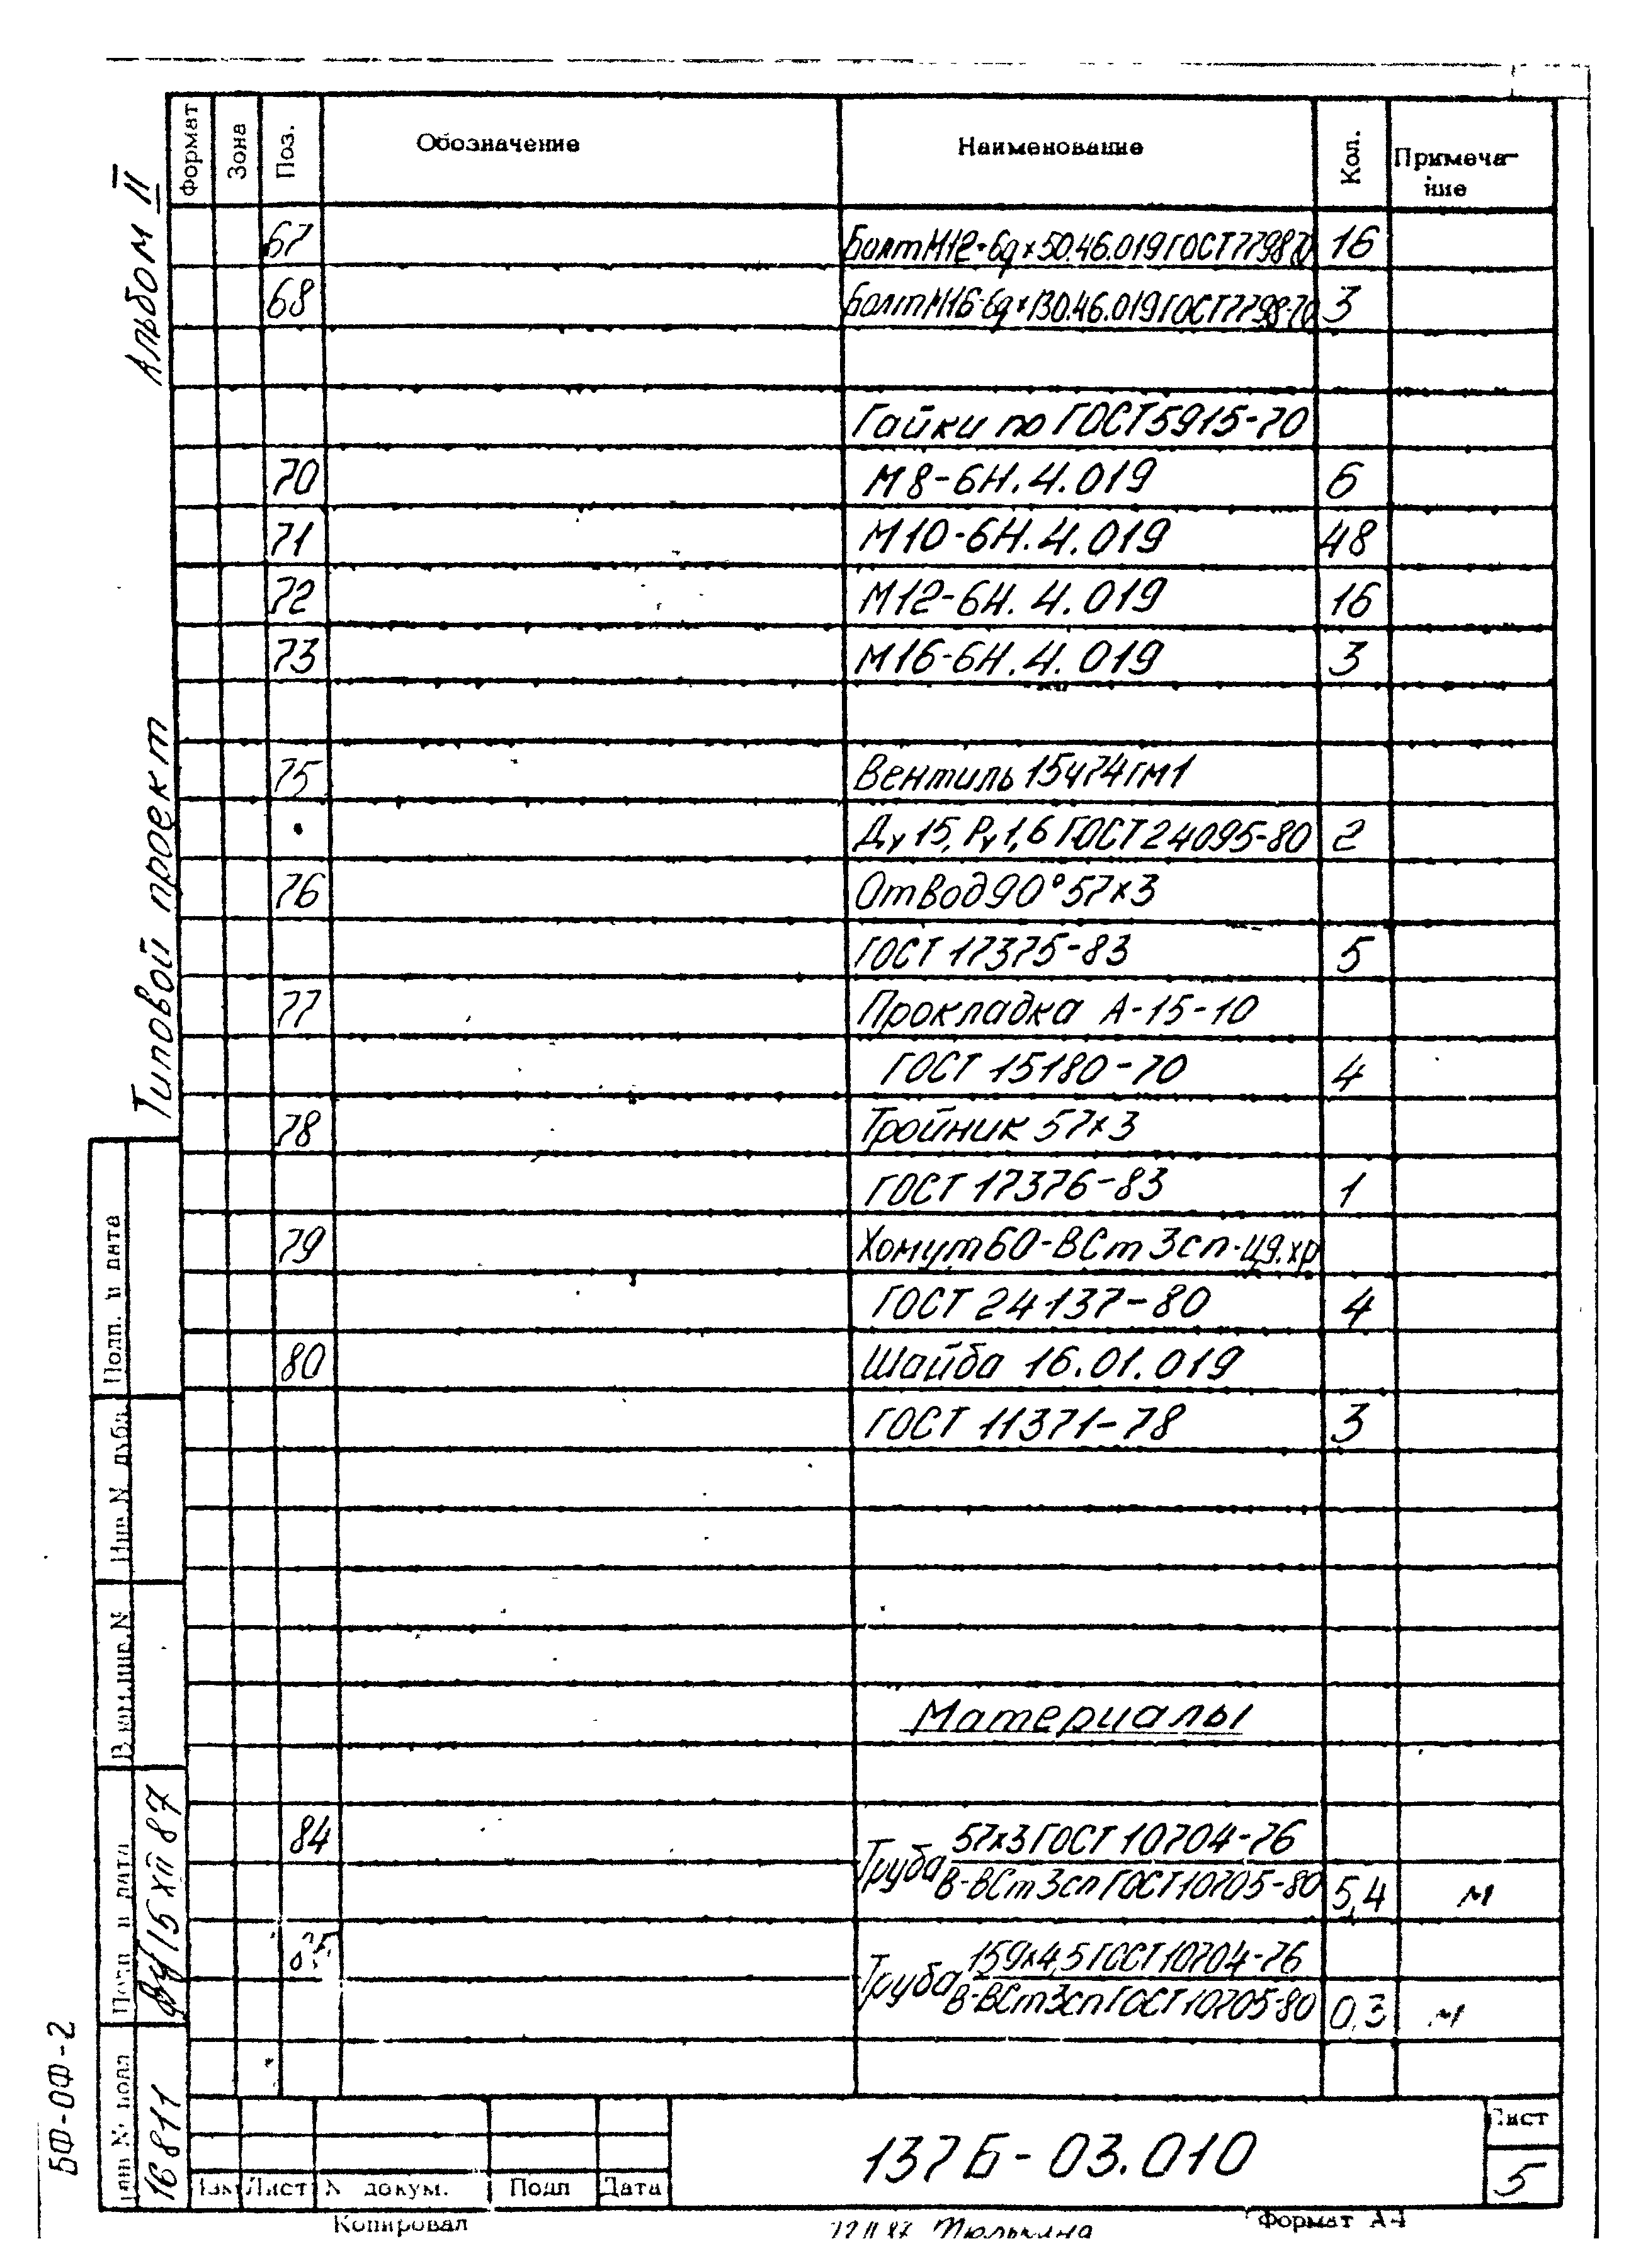 Формат Зона Поз. Обозначение Наименование Кол. Примеча-
ние
67 Болт М12-6g×50.46.019 ГОСТ 7798-70 16
68 Болт М16-6g×130.46.019 ГОСТ 7798-70 3
Гайки по ГОСТ 5915-70
70 М8-6Н.4.019 6
71 М10-6Н.4.019 48
72 М12-6Н.4.019 16
73 М16-6Н.4.019 3
75 Вентиль 15ч74гм1
Ду 15, Ру 1,6 ГОСТ 24095-80 2
76 Отвод 90° 57×3
ГОСТ 17375-83 5
77 Прокладка А-15-10
ГОСТ 15180-70 4
78 Тройник 57×3
ГОСТ 17376-83 1
79 Хомут 60-ВСт 3сп-ц9.хр
ГОСТ 24137-80 4
80 Шайба 16.01.019
ГОСТ 11371-78 3
Материалы
84 Труба 57×3 ГОСТ 10704-76
В-ВСт 3сп ГОСТ 10705-80 5,4 м
85 Труба 159×4,5 ГОСТ 10704-76
В-ВСт 3сп ГОСТ 10705-80 0,3 м
Альбом II
Типовой проект
Подп. и дата
Инв. N дубл.
Взам. инв. N
Подп. и дата
15 XII 87
Инв. N подл
16811
БФ-ОФ-2
Изм Лист N докум. Подп Дата
137Б-03.010
Лист
5
Копировал
Тюлькина
Формат А4